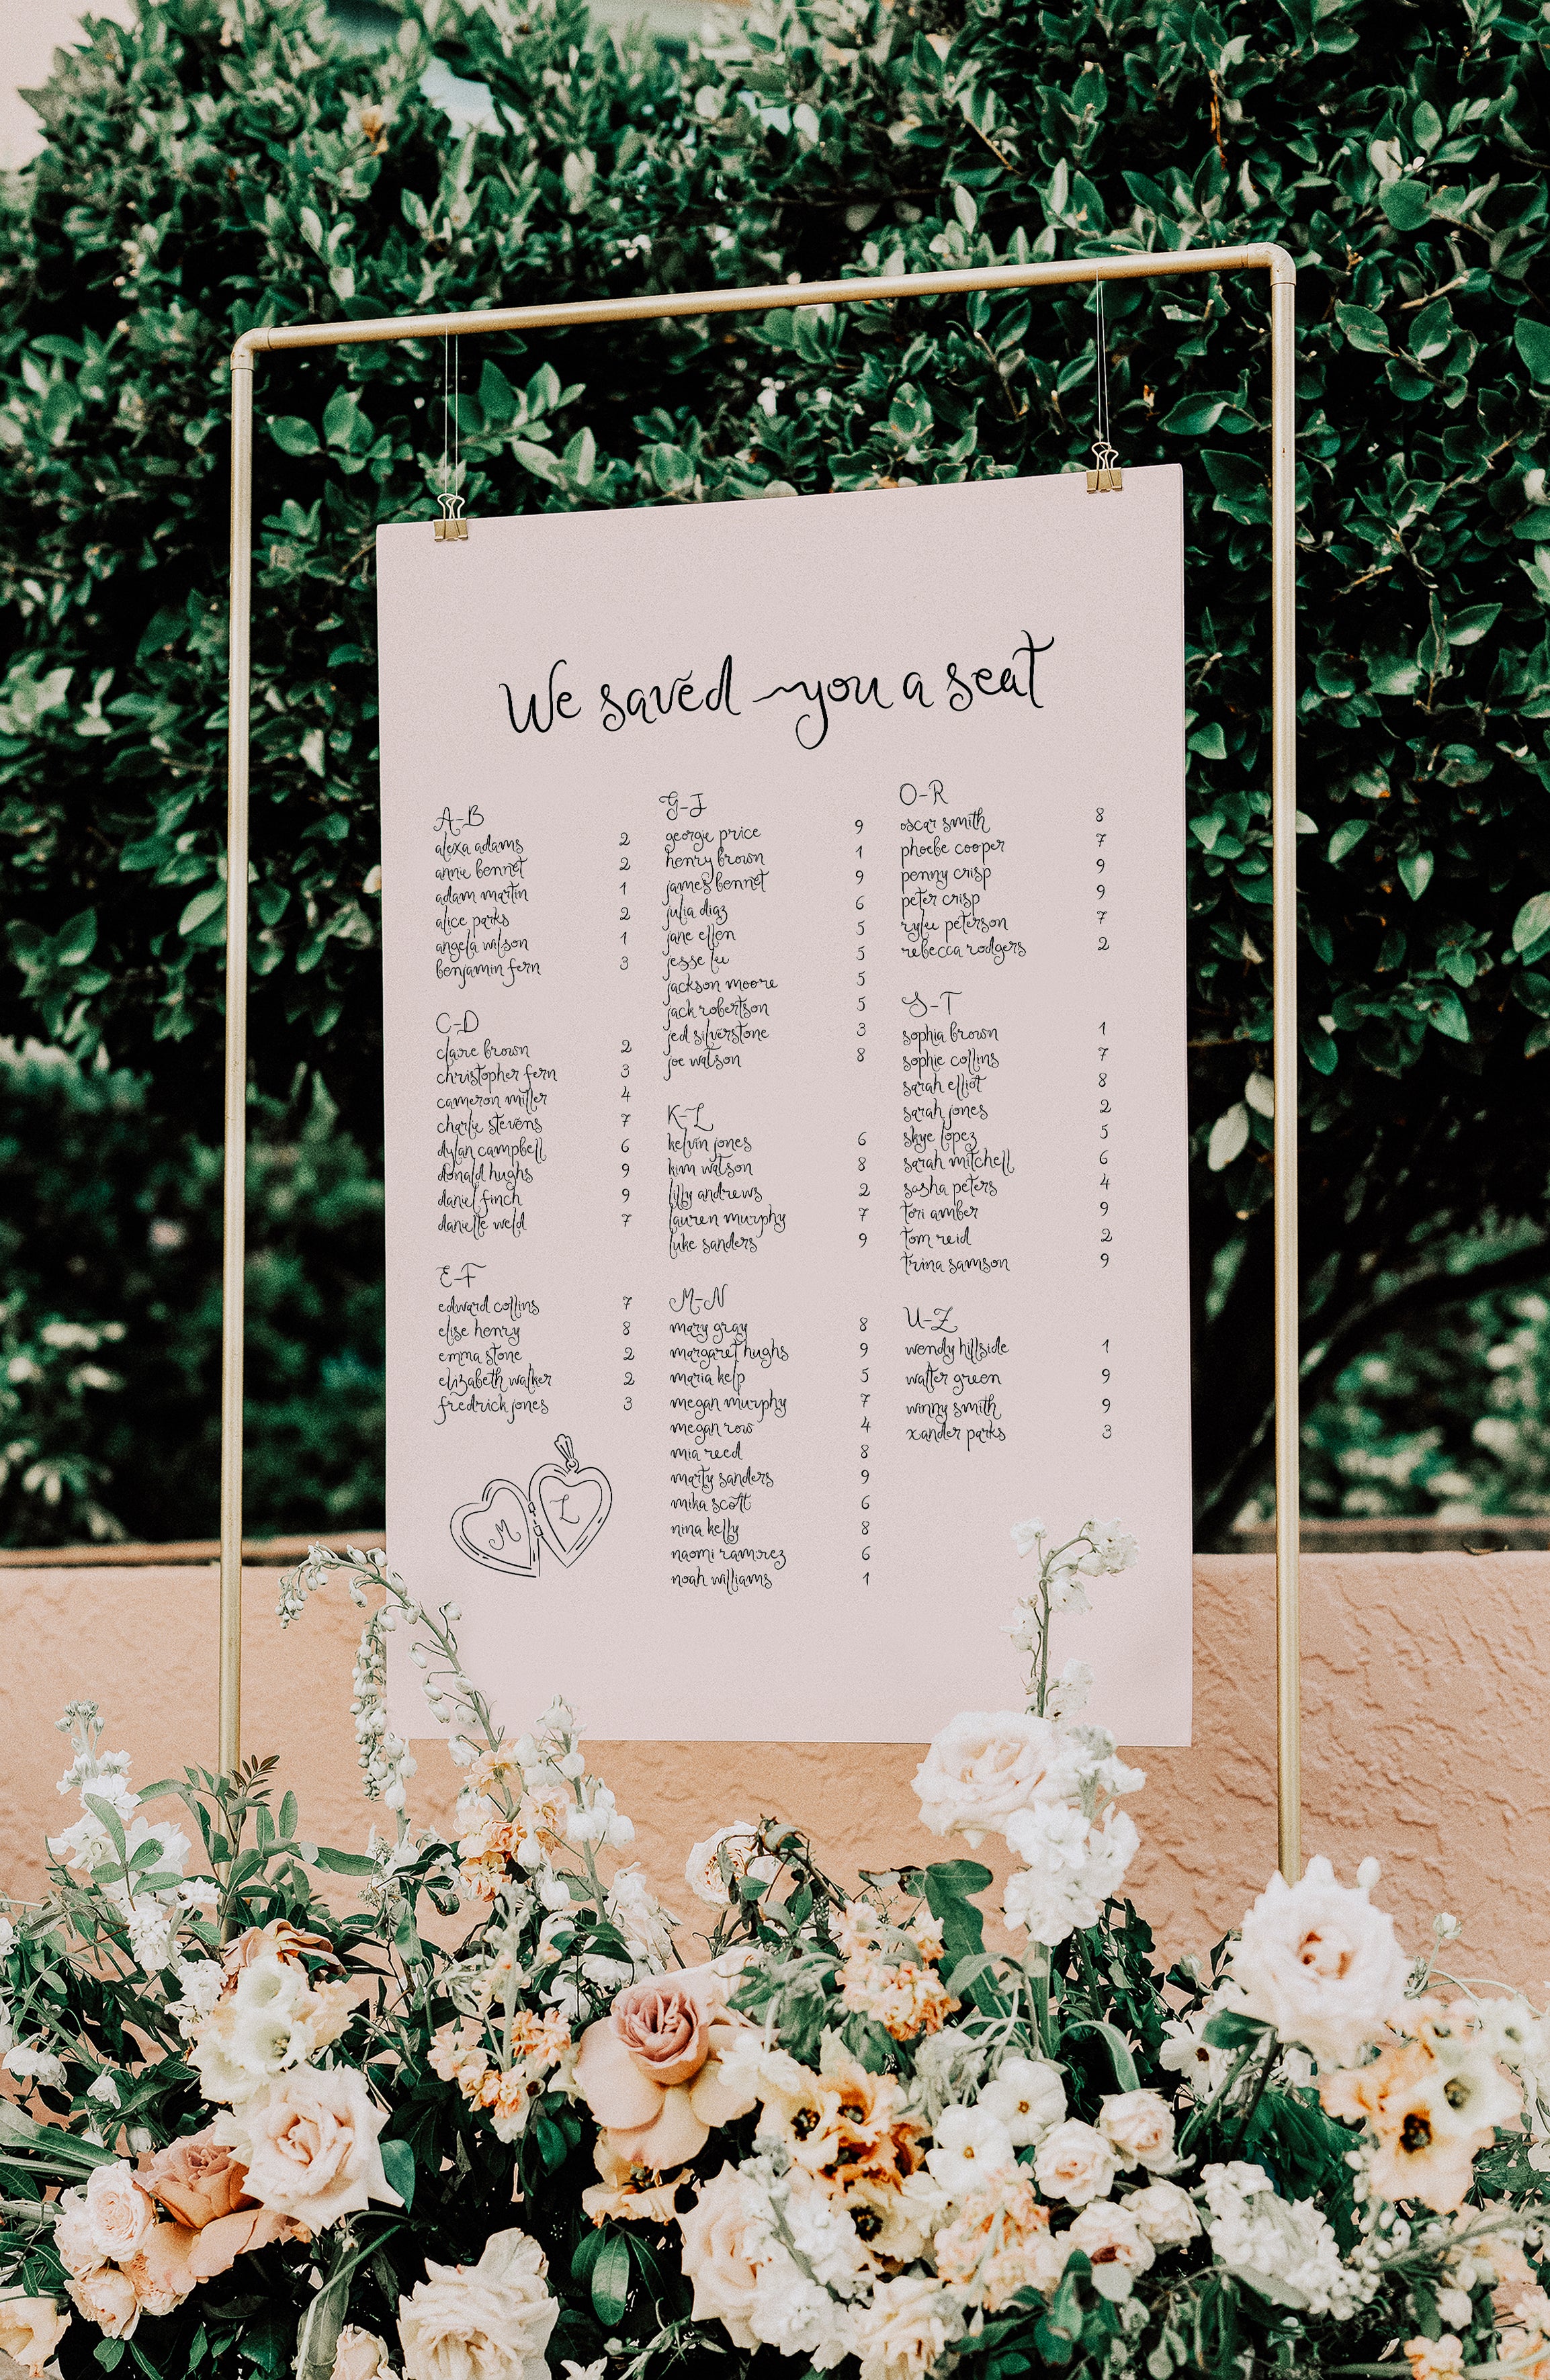 We saved you a seat
A-B
alexa adams 2
annie bennet 2
adam martin 1
alice parks 2
angela wilson 1
benjamin fern 3
C-D
claire brown 2
christopher fern 3
cameron miller 4
charlie stevens 7
dylan campbell 6
donald hughs 9
daniel finch 9
danielle weld 7
E-F
edward collins 7
elise henry 8
emma stone 2
elizabeth walker 2
fredrick jones 3
M L
G-J
george price 9
henry brown 1
james bennet 9
julia diaz 6
jane ellen 5
jesse lee 5
jackson moore 5
jack robertson 5
jed silverstone 3
joe watson 8
K-L
kelvin jones 6
kim watson 8
lilly andrews 2
lauren murphy 7
luke sanders 9
M-N
mary gray 8
margaret hughs 9
maria kelp 5
megan murphy 7
megan row 4
mia reed 8
marty sanders 9
mika scott 6
nina kelly 8
naomi ramirez 6
noah williams 1
O-R
oscar smith 8
phoebe cooper 7
penny crisp 9
peter crisp 9
rylee peterson 7
rebecca rodgers 2
S-T
sophia brown 1
sophie collins 7
sarah elliot 8
sarah jones 2
skye lopez 5
sarah mitchell 6
sasha peters 4
tori amber 9
tom reid 2
trina samson 9
U-Z
wendy hillside 1
walter green 9
winny smith 9
xander parks 3